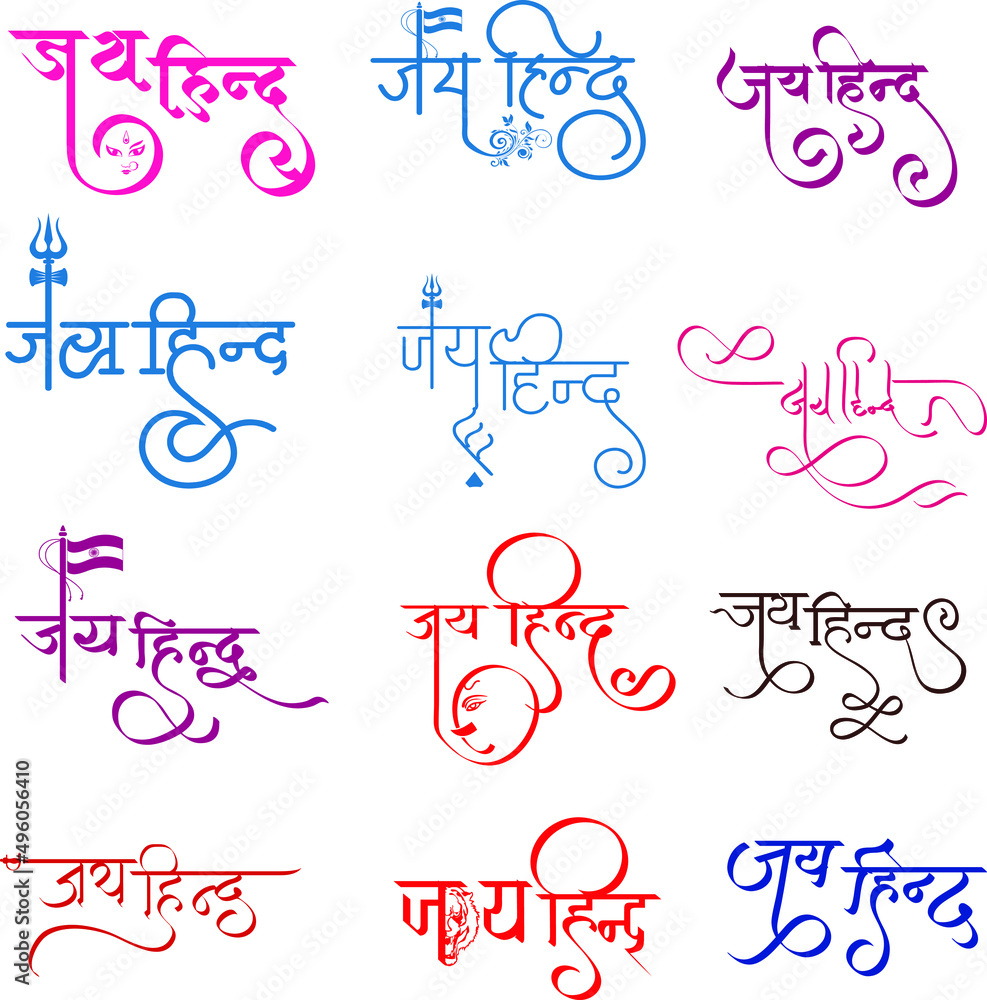 जय हिन्द जय हिन्द जय हिन्द
जय हिन्द जय हिन्द जय हिन्द
जय हिन्द जय हिन्द जय हिन्द
जय हिन्द जय हिन्द जय हिन्द
Adobe Stock | #496056410